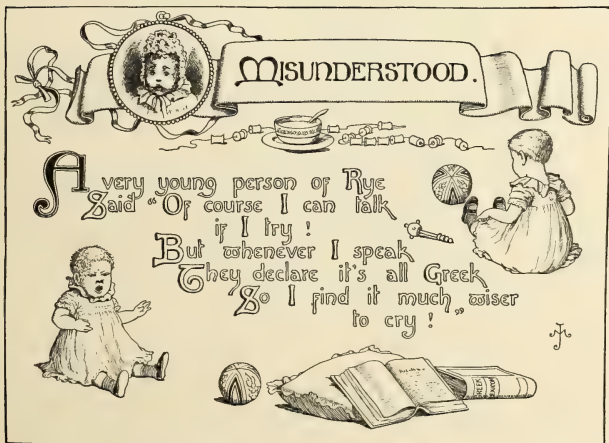 MISUNDERSTOOD.
A very young person of Rye
Said "Of course I can talk
if I try!
But whenever I speak
They declare it's all Greek
So I find it much wiser
to cry!"
GREEK